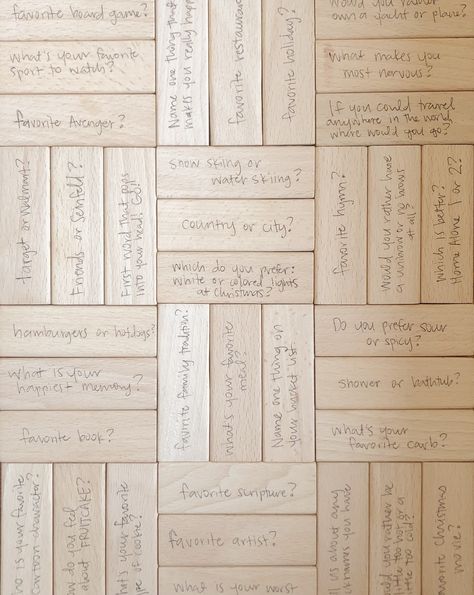 favorite board game?
what's your favorite
sport to watch?
favorite Avenger?
Name one thing that
makes you really happy
favorite restaurant
favorite holiday?
would you rather
own a yacht or plane?
what makes you
most nervous?
If you could travel
anywhere in the world
where would you go?
target or walmart?
Friends or Seinfeld?
First word that pops
into your head. Go!
snow skiing or
water skiing?
country or city?
which do you prefer:
white or colored lights
at Christmas?
favorite hymn?
would you rather have
a unibrow or no brows
at all?
which is better?
Home Alone 1 or 2?
hamburgers or hotdogs?
what is your
happiest memory?
favorite book?
favorite family tradition?
what's your favorite
meal?
Name one thing on
your bucket list.
Do you prefer sour
or spicy?
shower or bathtub?
what's your
favorite carb?
ho is your favorite
cartoon character?
ow do you feel
about FRUITCAKE?
hat's your favorite
ype of cookie?
favorite scripture?
favorite artist?
what is your worst
ll us about any
you have
ould you rather be
little too hot or a
ttle too cold?
favorite Christmas
movie?